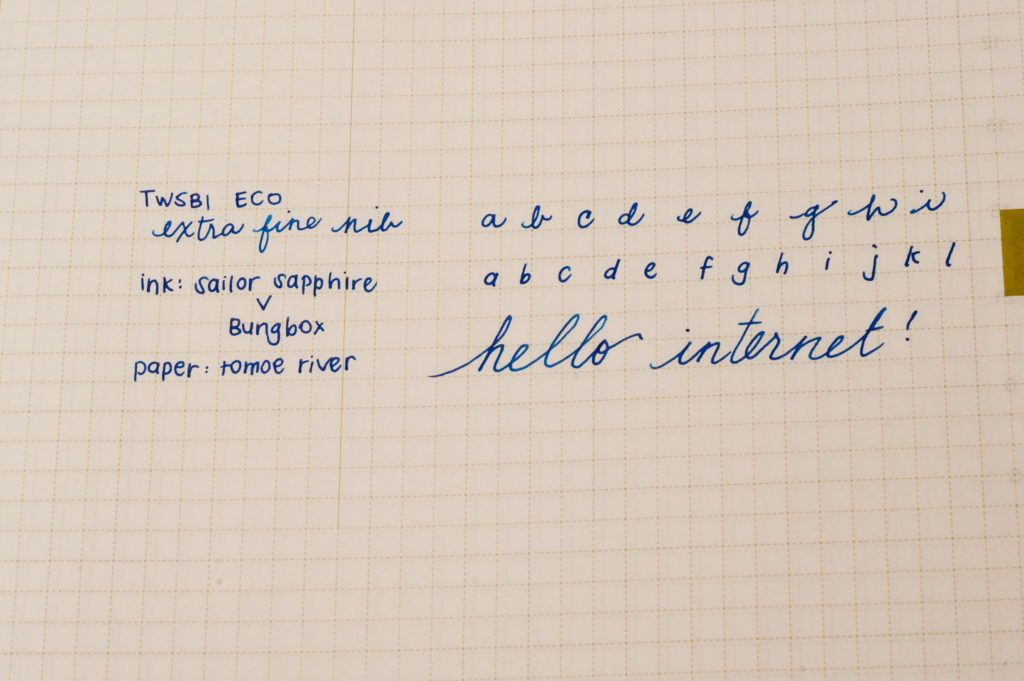 TWSBI ECO
extra fine nib
ink: sailor sapphire
Bungbox
paper: tomoe river
a b c d e f g h i
a b c d e f g h i j k l
hello internet!